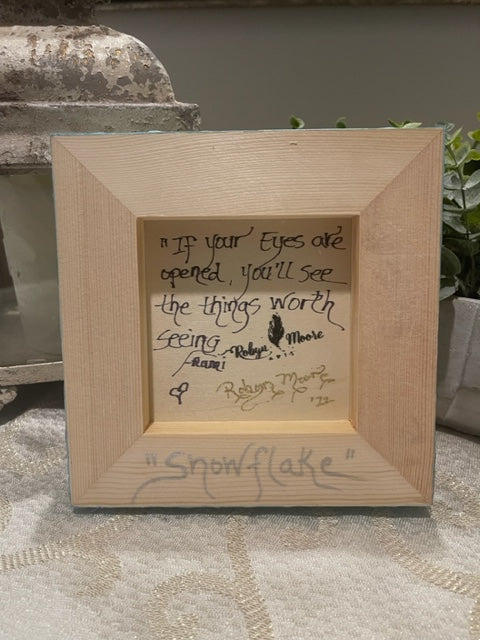 "If your Eyes are
opened, you'll see
the things worth
seeing
Rumi
Robyn Moore
Robyn Moore
'22
"Snowflake"